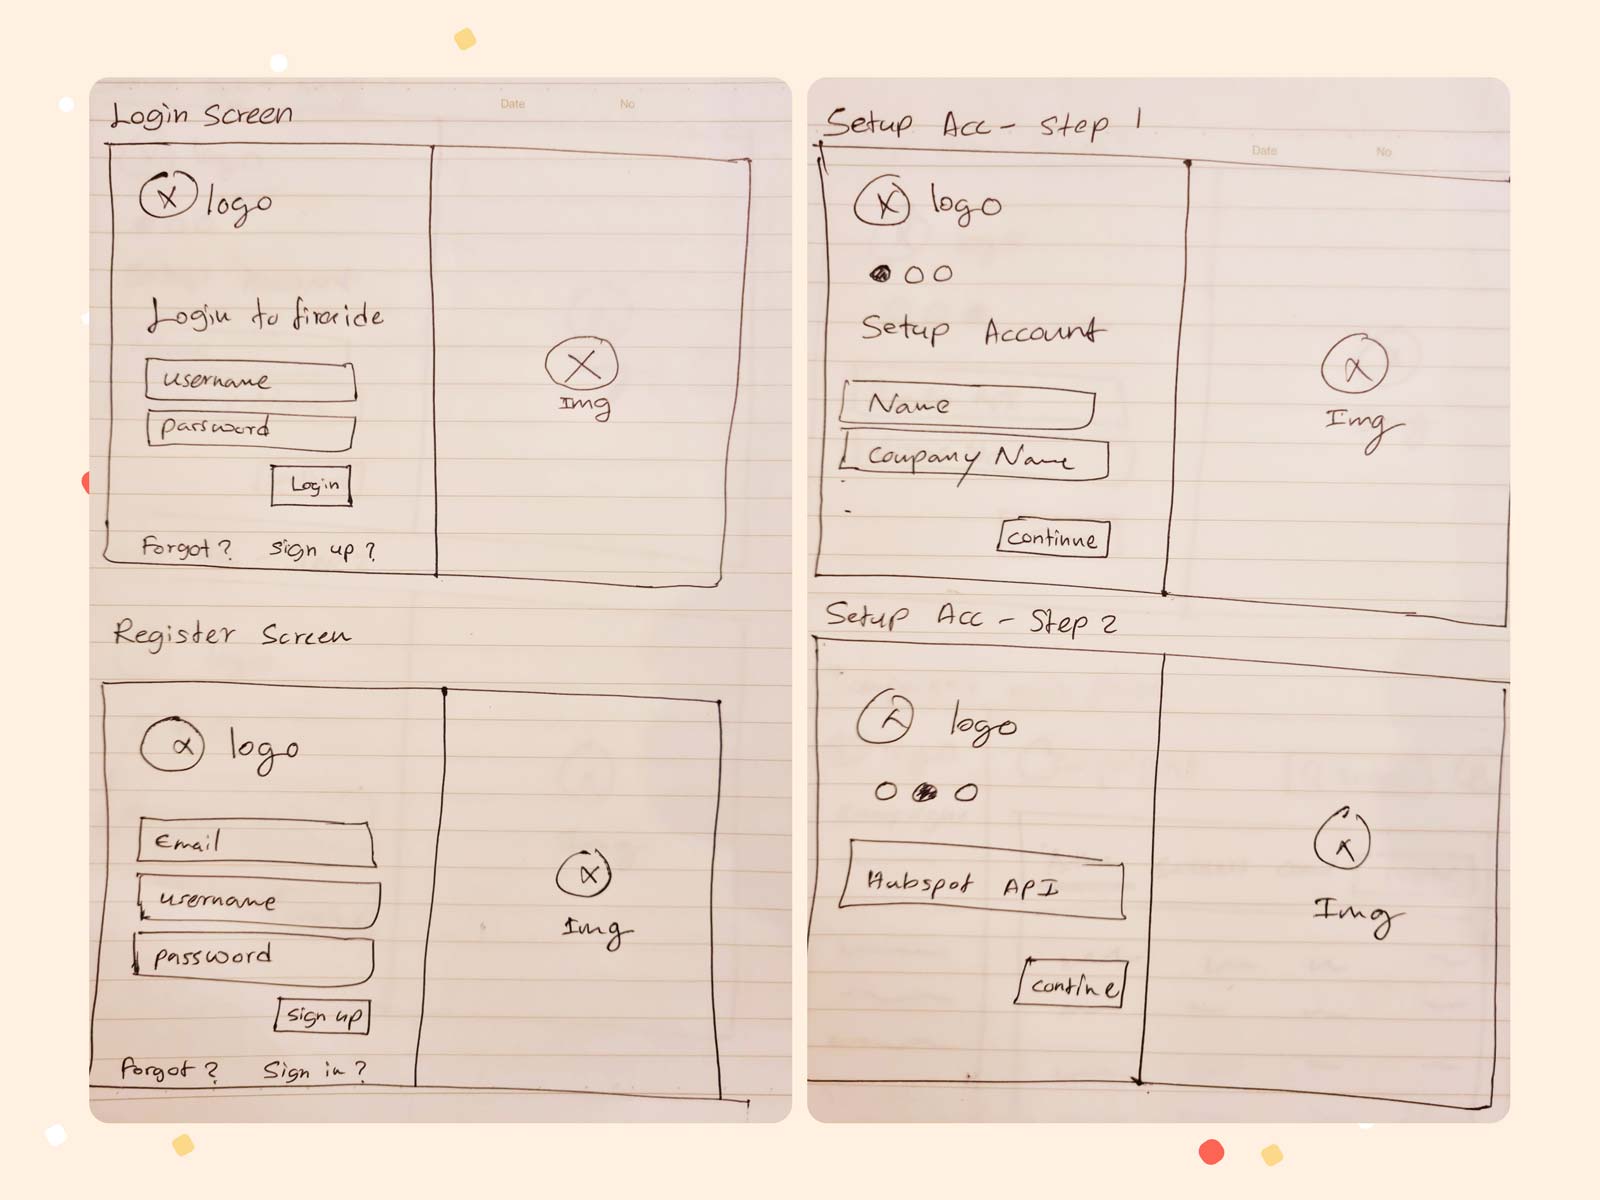 Login Screen
Date No
logo
Login to
username
password
Login
Forgot? Sign up?
Img
Register Screen
logo
Email
username
password
sign up
Forgot? Sign in?
Img
Setup Acc - Step 1
Date No
logo
Setup Account
Name
Company Name
continue
Img
Setup Acc - Step 2
logo
Hubspot API
contine
Img